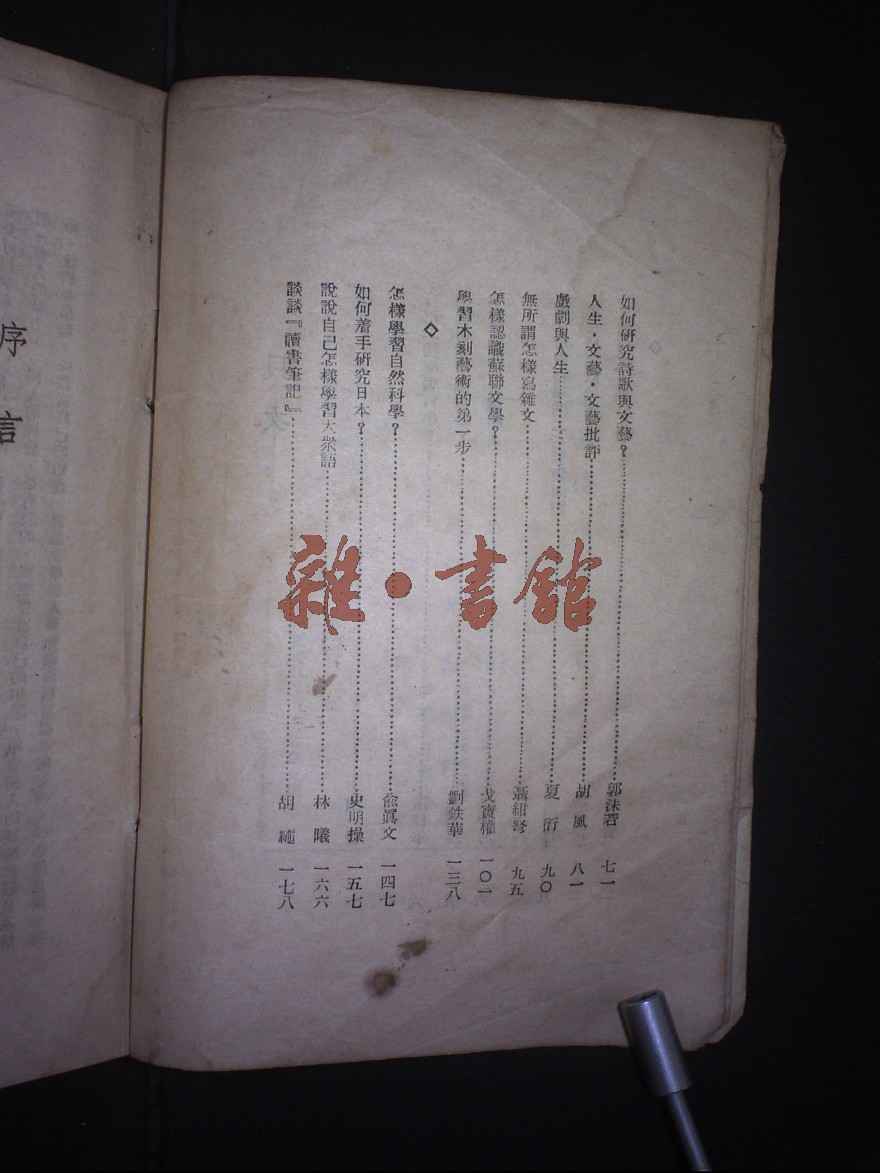 如何研究詩歌與文藝？……郭沫若 七一
人生·文藝·文藝批評……胡風 八一
戲劇與人生……夏衍 九〇
無所謂怎樣寫雜文……聶紺弩 九五
怎樣認識蘇聯文學？……戈寶權 一〇一
學習木刻藝術的第一步……劉鉄華 一三八
◇
怎樣學習自然科學？……俞眞文 一四七
如何着手研究日本？……史明操 一五七
說說自己怎樣學習大衆語……林曦 一六六
談談『讀書筆記』……胡繩 一七八
序言
雜·書館